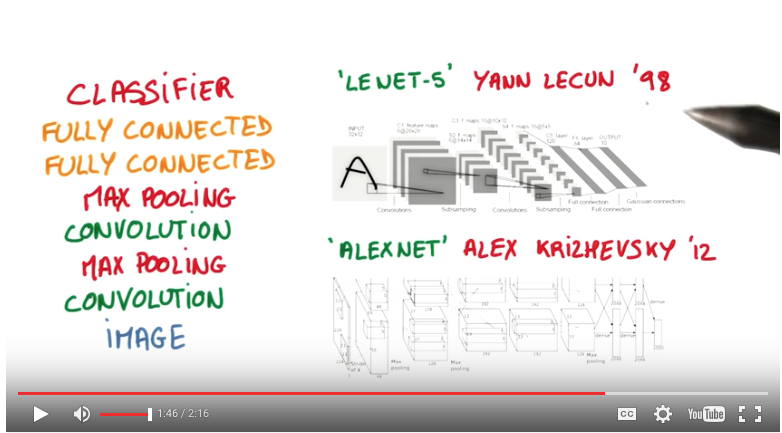 CLASSIFIER
FULLY CONNECTED
FULLY CONNECTED
MAX POOLING
CONVOLUTION
MAX POOLING
CONVOLUTION
IMAGE
'LENET-5' YANN LECUN '98
INPUT
32x32
C1: feature maps
6@28x28
S2: f. maps
6@14x14
C3: f. maps 16@10x10
S4: f. maps 16@5x5
C5: layer
120
F6: layer
84
OUTPUT
10
Convolutions
Subsampling
Convolutions
Subsampling
Full connection
Full connection
Gaussian connections
A
'ALEXNET' ALEX KRIZHEVSKY '12
Stride
of 4
Max
pooling
128
Max
pooling
192
192
192
192
128
Max
pooling
dense
dense
dense
1:46 / 2:16
CC
YouTube